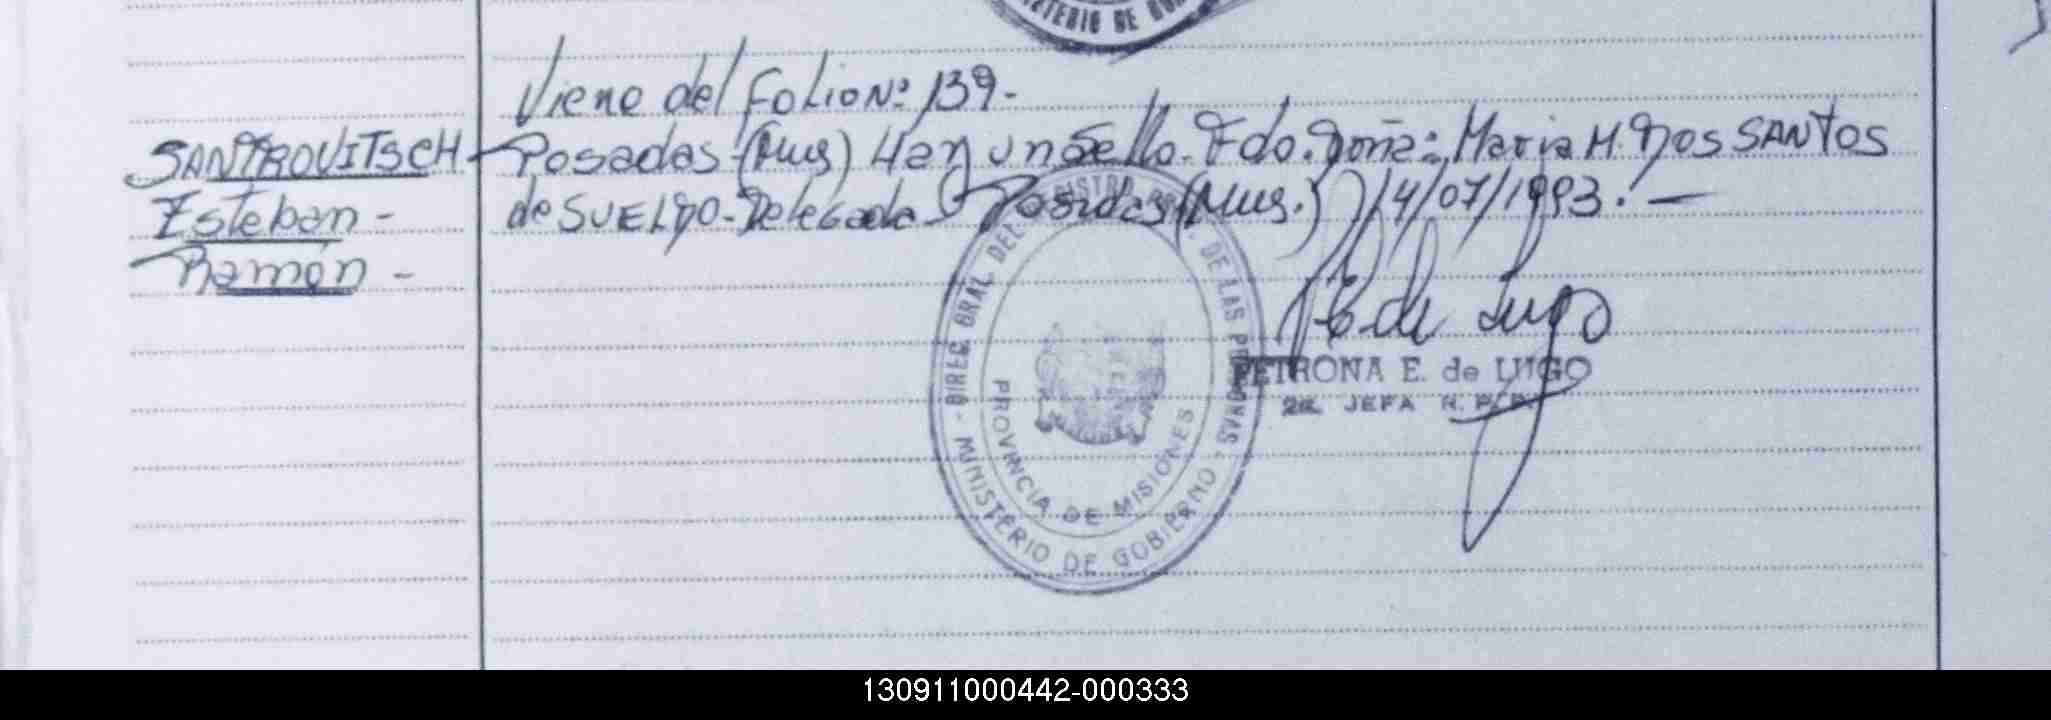 MINISTERIO DE
Viene del Folio Nº 139.-
SANTROVITSCH Posadas (Mns) Hay un Sello. Fdo. Doña: Maria H. Dos SANTOS
Esteban - de SUELDO - Delegada - Posadas (Mns.) 14/07/1993.-
Ramón -
P E de Lugo
PETRONA E. de LUGO
2a. JEFA R.P.P.
- DIREC. GRAL. DEL REGISTRO PROV. DE LAS PERSONAS -
MINISTERIO DE GOBIERNO
PROVINCIA DE MISIONES
130911000442-000333